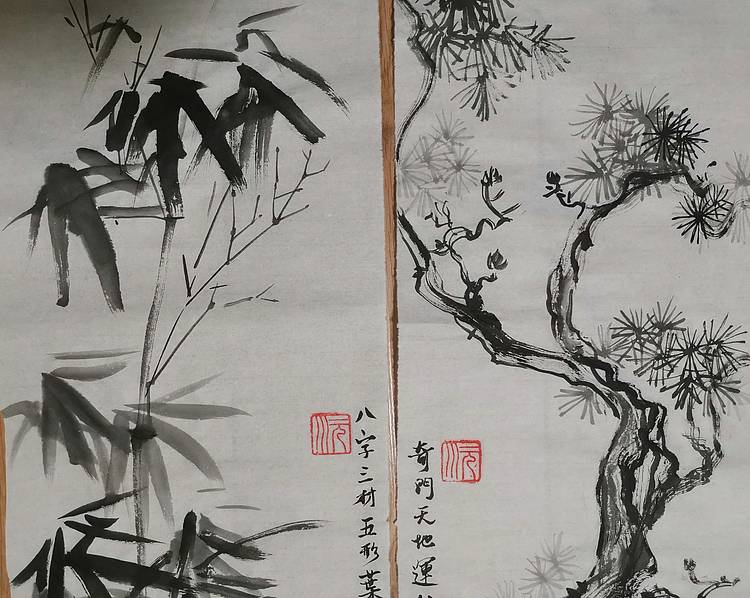 八字三材五形葉
奇門天地運
沅
沅